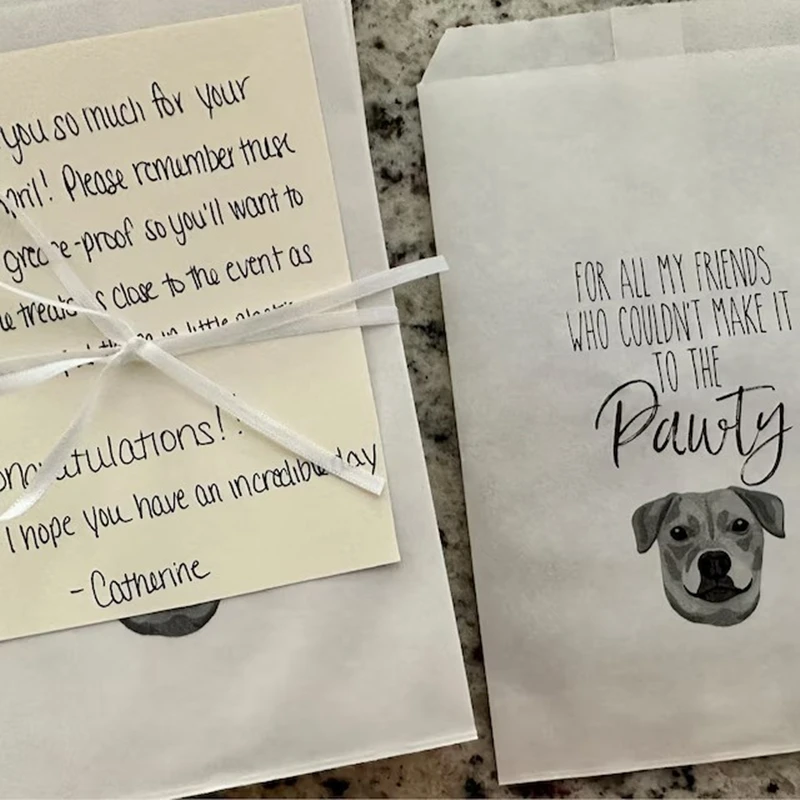 you so much for your
April! Please remember these
grease-proof so you'll want to
treats as close to the event as
in little
Congratulations!
I hope you have an incredible day
- Catherine
FOR ALL MY FRIENDS
WHO COULDN'T MAKE IT
TO THE
Pawty